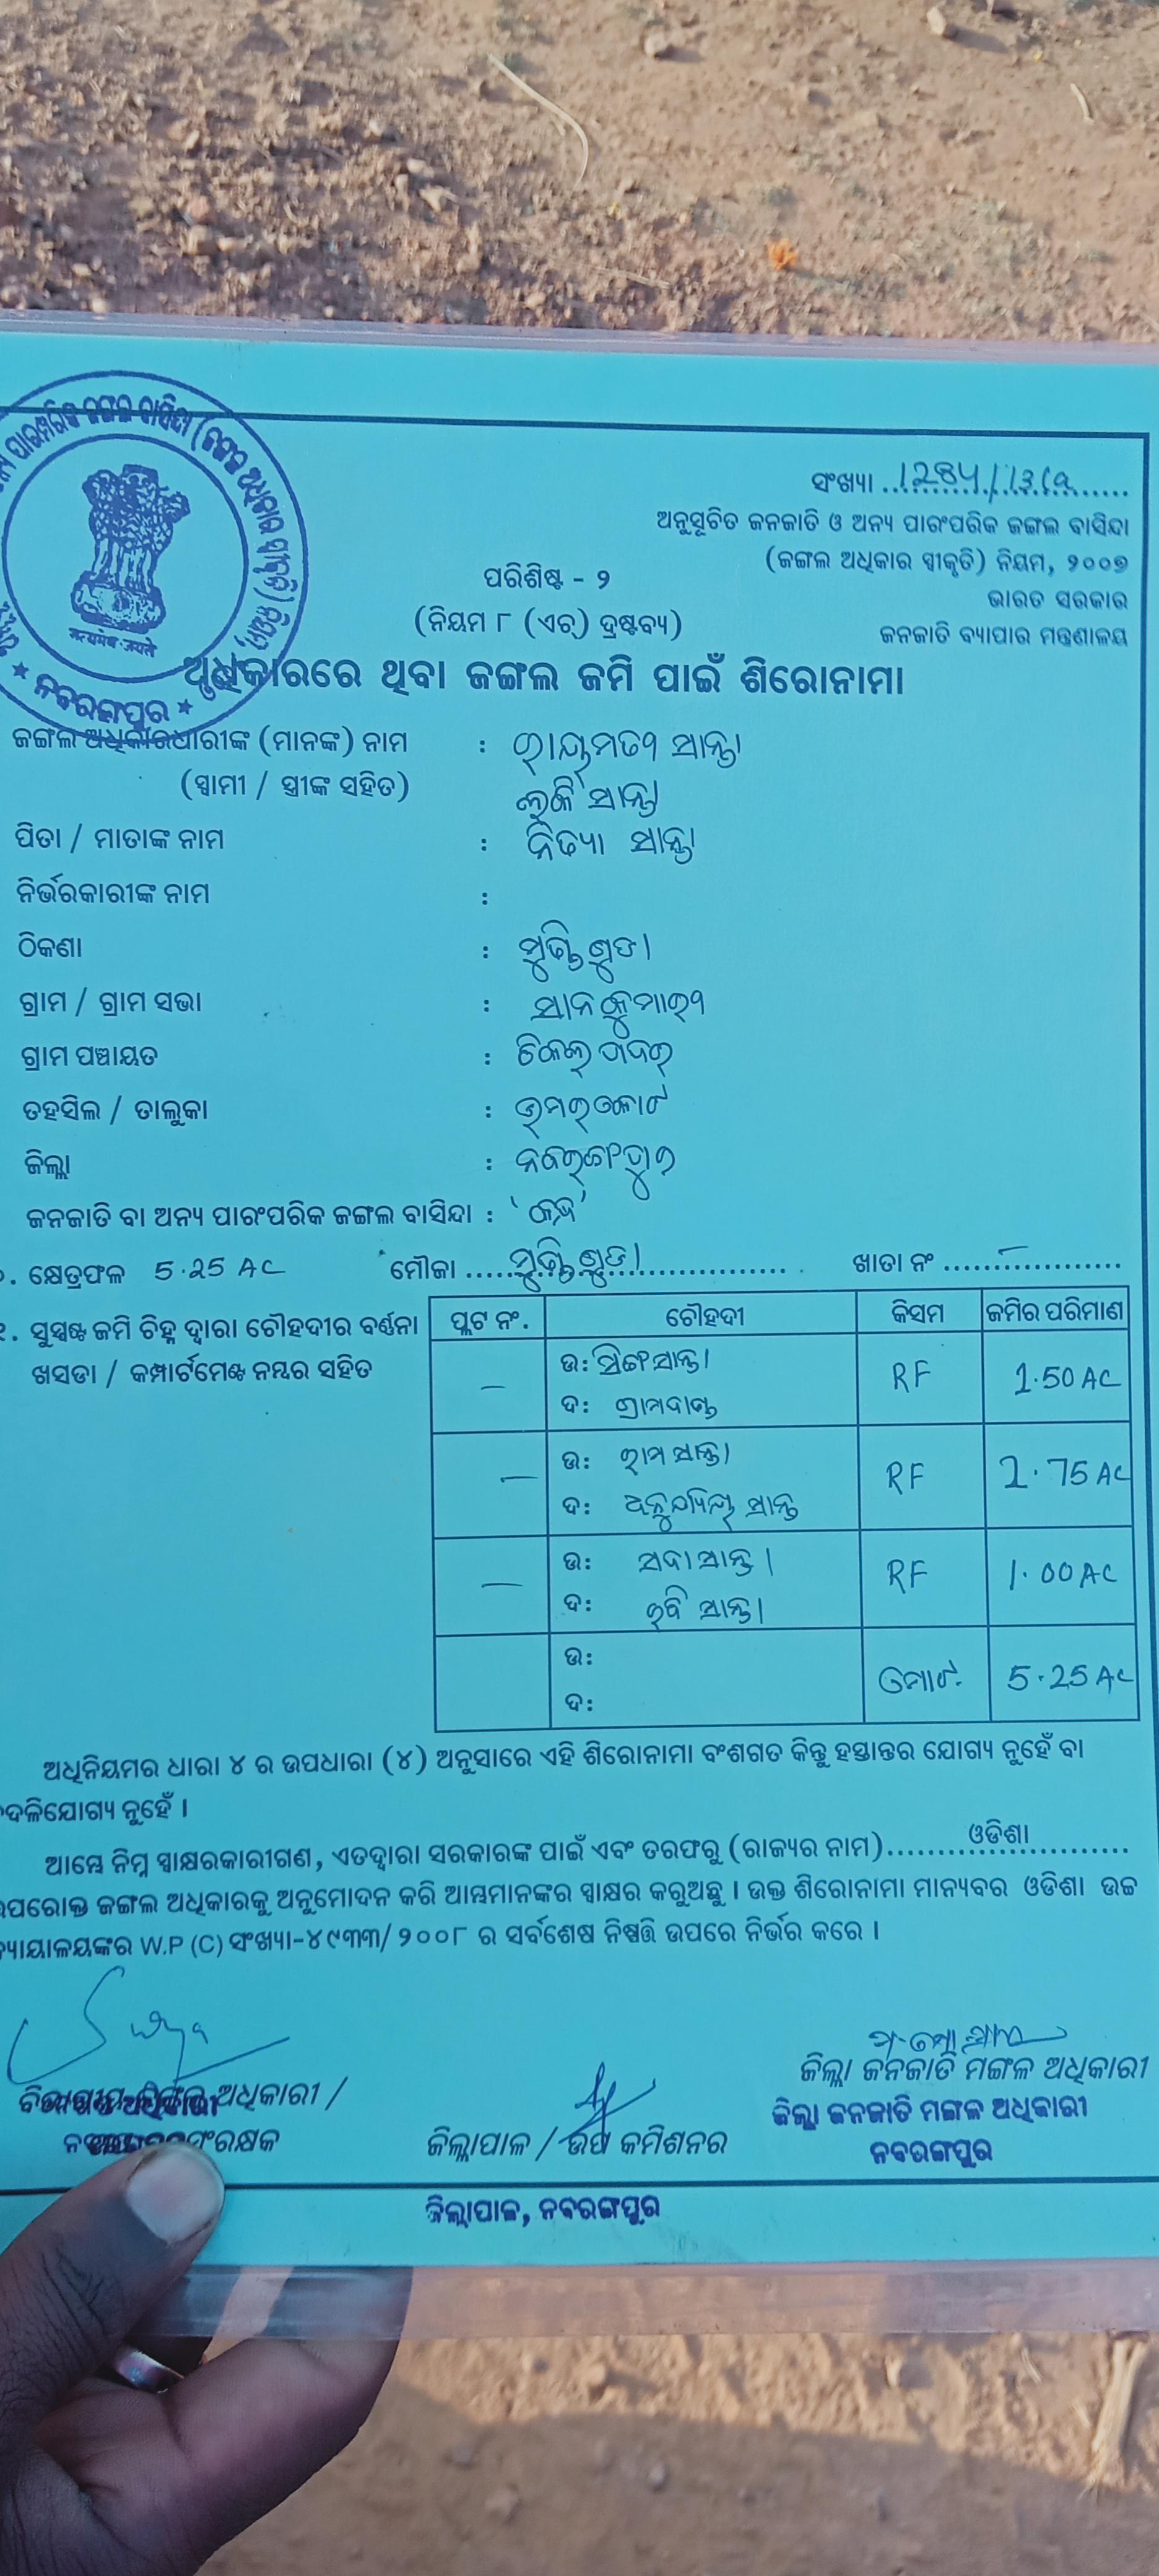 ପାରମ୍ପରିକ ଜଙ୍ଗଲ ବାସିନ୍ଦା (ଜଙ୍ଗଲ ଅଧିକାର ସ୍ୱୀକୃତି) ନିୟମ
सत्यमेव जयते
★ ନବରଙ୍ଗପୁର ★
ସଂଖ୍ୟା
ଅନୁସୂଚିତ ଜନଜାତି ଓ ଅନ୍ୟ ପାରଂପରିକ ଜଙ୍ଗଲ ବାସିନ୍ଦା
(ଜଙ୍ଗଲ ଅଧିକାର ସ୍ୱୀକୃତି) ନିୟମ, ୨୦୦୭
ଭାରତ ସରକାର
ଜନଜାତି ବ୍ୟାପାର ମନ୍ତ୍ରଣାଳୟ
ପରିଶିଷ୍ଟ - ୨
(ନିୟମ ୮ (ଏଚ୍) ଦ୍ରଷ୍ଟବ୍ୟ)
ଅଧିକାରରେ ଥିବା ଜଙ୍ଗଲ ଜମି ପାଇଁ ଶିରୋନାମା
ଜଙ୍ଗଲ ଅଧିକାରଧାରୀଙ୍କ (ମାନଙ୍କ) ନାମ : ସାନ୍ତା
(ସ୍ୱାମୀ / ସ୍ତ୍ରୀଙ୍କ ସହିତ) ସାନ୍ତା
ପିତା / ମାତାଙ୍କ ନାମ : ନିତ୍ୟା ସାନ୍ତା
ନିର୍ଭରକାରୀଙ୍କ ନାମ :
ଠିକଣା :
ଗ୍ରାମ / ଗ୍ରାମ ସଭା :
ଗ୍ରାମ ପଞ୍ଚାୟତ :
ତହସିଲ / ତାଲୁକା : ଉମରକୋଟ
ଜିଲ୍ଲା : ନବରଂଗପୁର
ଜନଜାତି ବା ଅନ୍ୟ ପାରଂପରିକ ଜଙ୍ଗଲ ବାସିନ୍ଦା :
କ୍ଷେତ୍ରଫଳ 5.25 AC ମୌଜା ........ ଖାତା ନଂ ........
ସୁସ୍ପଷ୍ଟ ଜମି ଚିହ୍ନ ଦ୍ୱାରା ଚୌହଦୀର ବର୍ଣ୍ଣନା
ଖସଡା / କମ୍ପାର୍ଟମେଣ୍ଟ ନମ୍ବର ସହିତ
ପ୍ଲଟ ନଂ. ଚୌହଦୀ କିସମ ଜମିର ପରିମାଣ
— ଉ: ସାନ୍ତା RF 1.50 AC
ଦ: ଗ୍ରାମଦାଣ୍ଡ
— ଉ: ରାମ ସାନ୍ତା RF 2.75 AC
ଦ: ସାନ୍ତା
— ଉ: ସଦା ସାନ୍ତା RF 1.00 AC
ଦ: ରବି ସାନ୍ତା
ଉ: ମୋଟ 5.25 AC
ଦ:
ଅଧିନିୟମର ଧାରା ୪ ର ଉପଧାରା (୪) ଅନୁସାରେ ଏହି ଶିରୋନାମା ବଂଶଗତ କିନ୍ତୁ ହସ୍ତାନ୍ତର ଯୋଗ୍ୟ ନୁହେଁ ବା
ବଦଳିଯୋଗ୍ୟ ନୁହେଁ ।
ଆମ୍ଭେ ନିମ୍ନ ସ୍ୱାକ୍ଷରକାରୀଗଣ, ଏତଦ୍ୱାରା ସରକାରଙ୍କ ପାଇଁ ଏବଂ ତରଫରୁ (ରାଜ୍ୟର ନାମ)........ଓଡିଶା........
ଉପରୋକ୍ତ ଜଙ୍ଗଲ ଅଧିକାରକୁ ଅନୁମୋଦନ କରି ଆମ୍ଭମାନଙ୍କର ସ୍ୱାକ୍ଷର କରୁଅଛୁ । ଉକ୍ତ ଶିରୋନାମା ମାନ୍ୟବର ଓଡିଶା ଉଚ୍ଚ
ନ୍ୟାୟାଳୟଙ୍କର W.P (C) ସଂଖ୍ୟା-୪୯୩୩/ ୨୦୦୮ ର ସର୍ବଶେଷ ନିଷ୍ପତ୍ତି ଉପରେ ନିର୍ଭର କରେ ।
ଅଧିକାରୀ /
ଜିଲ୍ଲାପାଳ / ଉପ କମିଶନର
ଜିଲ୍ଲାପାଳ, ନବରଙ୍ଗପୁର
ଜିଲ୍ଲା ଜନଜାତି ମଙ୍ଗଳ ଅଧିକାରୀ
ଜିଲ୍ଲା ଜନଜାତି ମଙ୍ଗଳ ଅଧିକାରୀ
ନବରଙ୍ଗପୁର